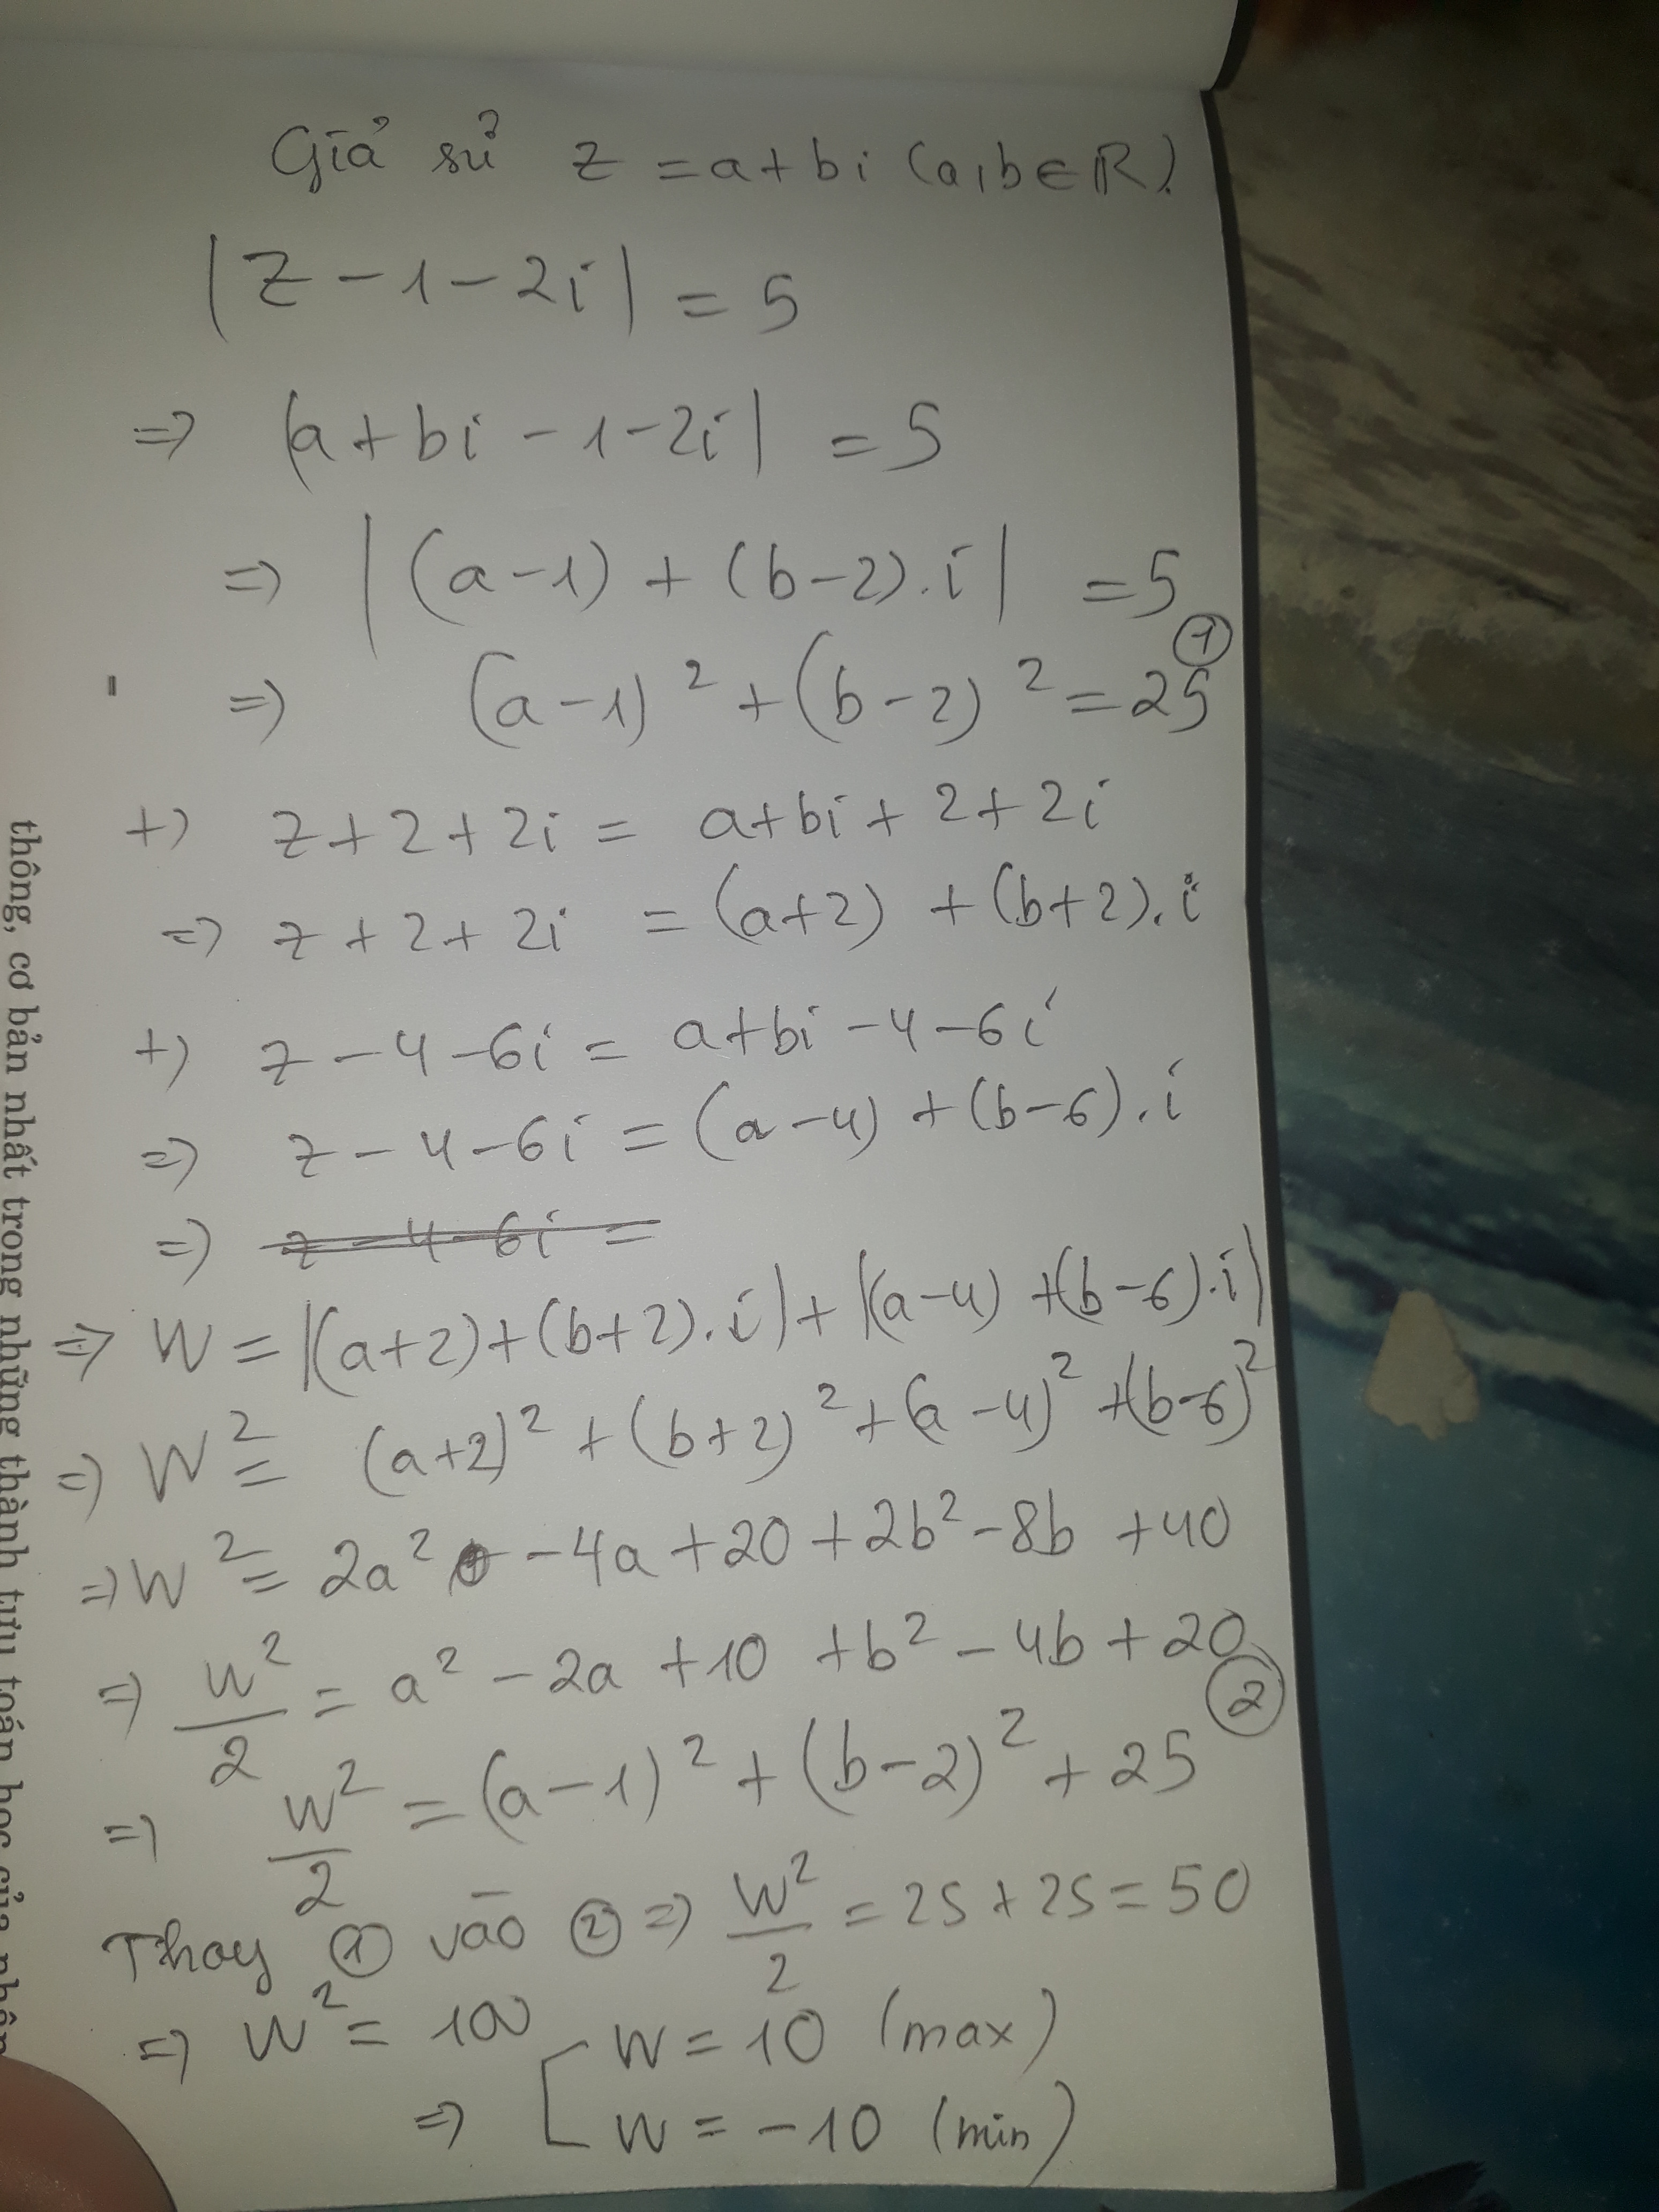 Giả sử z = a + bi (a, b ∈ R).
|z - 1 - 2i| = 5
=> |a + bi - 1 - 2i| = 5
=> |(a - 1) + (b - 2).i| = 5
=> (a - 1)² + (b - 2)² = 25 ①
+) z + 2 + 2i = a + bi + 2 + 2i
=> z + 2 + 2i = (a + 2) + (b + 2).i
+) z - 4 - 6i = a + bi - 4 - 6i
=> z - 4 - 6i = (a - 4) + (b - 6).i
=> z - 4 - 6i =
=> W = |(a + 2) + (b + 2).i| + |(a - 4) + (b - 6).i|
=> W² = (a + 2)² + (b + 2)² + (a - 4)² + (b - 6)²
=> W² = 2a² - 4a + 20 + 2b² - 8b + 40
=> W²/2 = a² - 2a + 10 + b² - 4b + 20
=> W²/2 = (a - 1)² + (b - 2)² + 25 ②
Thay ① vào ② => W²/2 = 25 + 25 = 50
=> W² = 100
=> [ W = 10 (max)
W = -10 (min)
thông, cơ bản nhất trong những thành tựu toán học của nhân